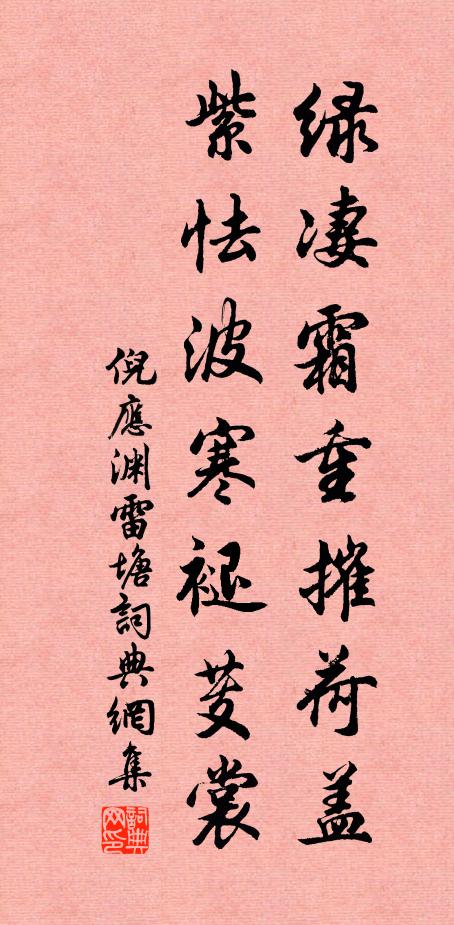 绿凄霜重摧荷盖
紫怯波寒褪芰裳
倪應渊雷塘詞典網集
詞典网印